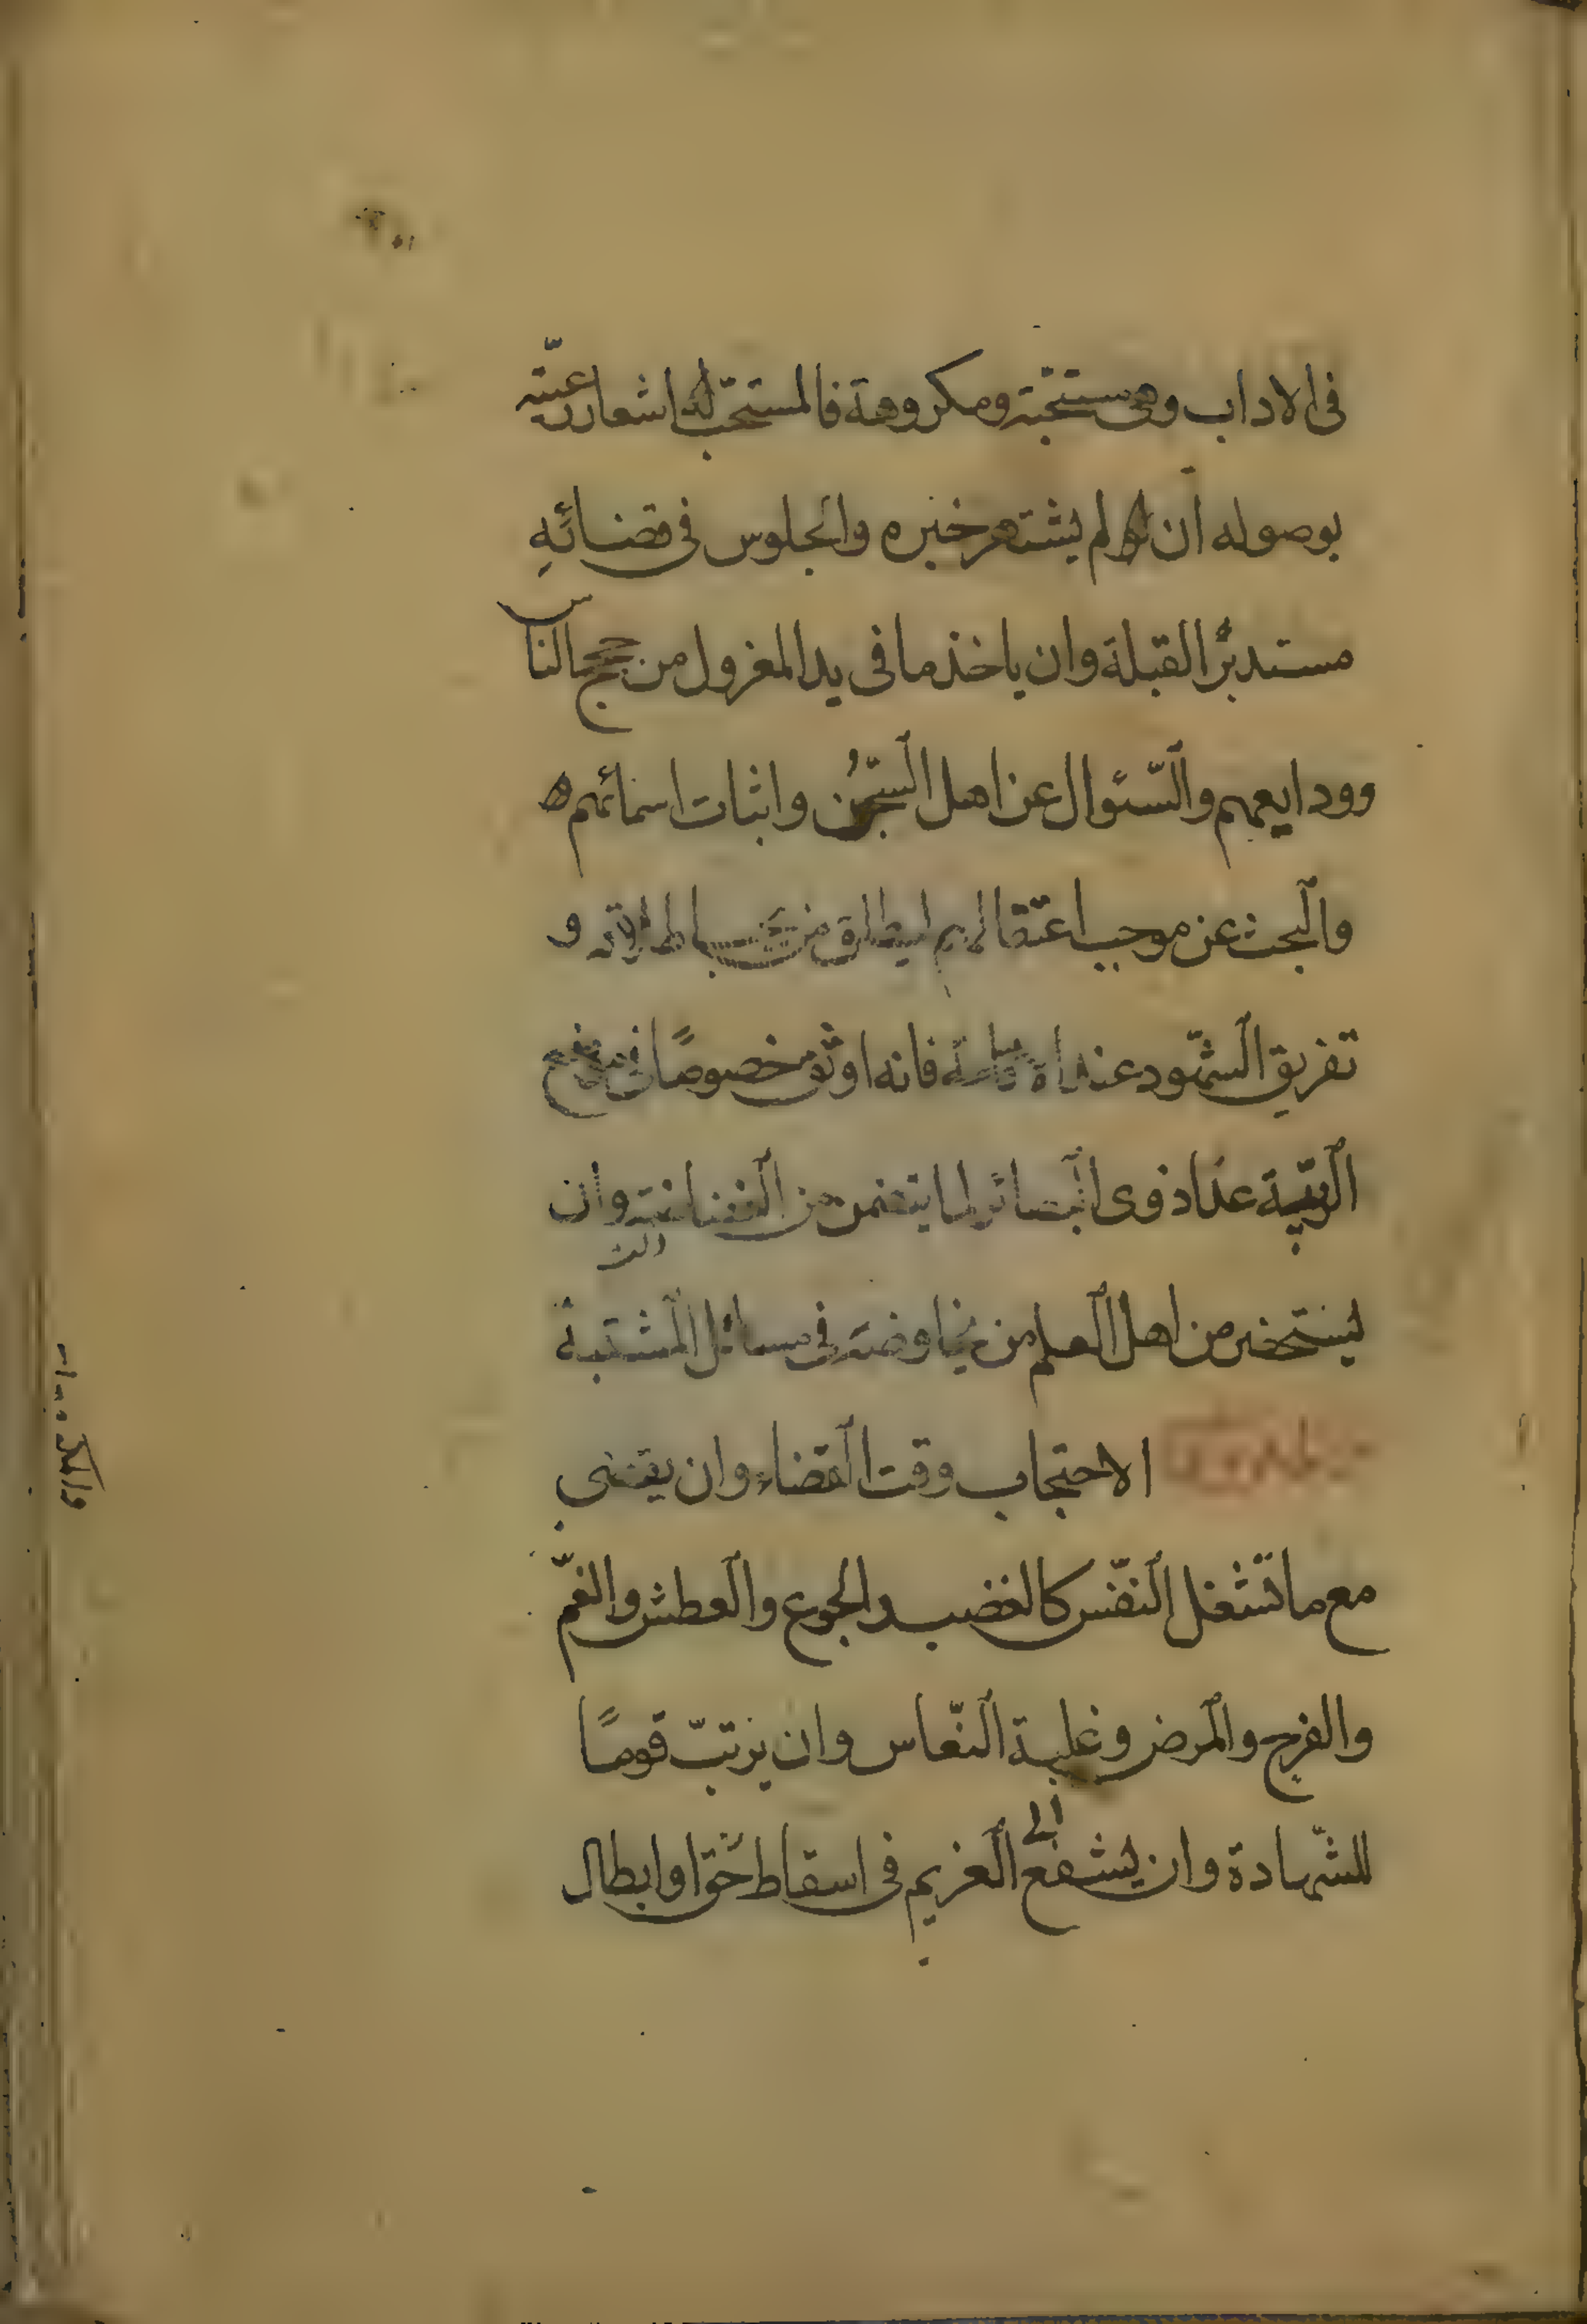 فى الاداب وهى مستحبّة ومكروهة فالمستحبّ له اشعار رعيّته
بوصوله ان لم يشتهر خبره والجلوس فى قضائه
مستدبر القبلة وان ياخذ ما فى يد المعزول من حجج الناس
وودايعهم والسّئوال عن اهل السّجن واثبات اسمائهم
والبحث عن موجب اعتقالهم ليطلق من يجب اطلاقه و
تفريق الشّهود عند فانه اوثق خصوصًا فى موضع
الريبة عدا ذوى البصائر لما يتضمن من الغضاضة وان
يستحضر من اهل العلم من يخاوضه فى مسائل المشتبة
الاحتجاب وقت القضاء وان يقضى
مع ما تشغل النفس كالغضب والجوع والعطش والغمّ
والفرح والمرض وغلبة النّعاس وان يرتبّ قومًا
للشّهادة وان يشفع الى الغريم فى اسقاط حق او ابطال